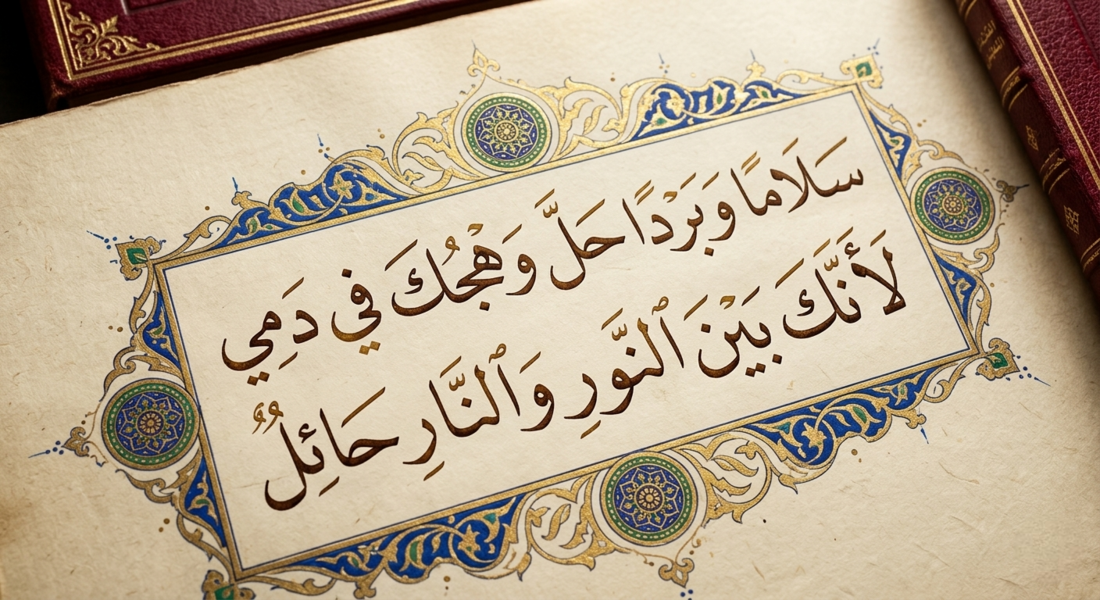 سَلَامًا وَبَرْدًا حَلَّ وَهْجُكَ فِي دَمِي
لَأَنَّكَ بَيْنَ ٱلنُّورِ وَٱلنَّارِ حَائِلٌ